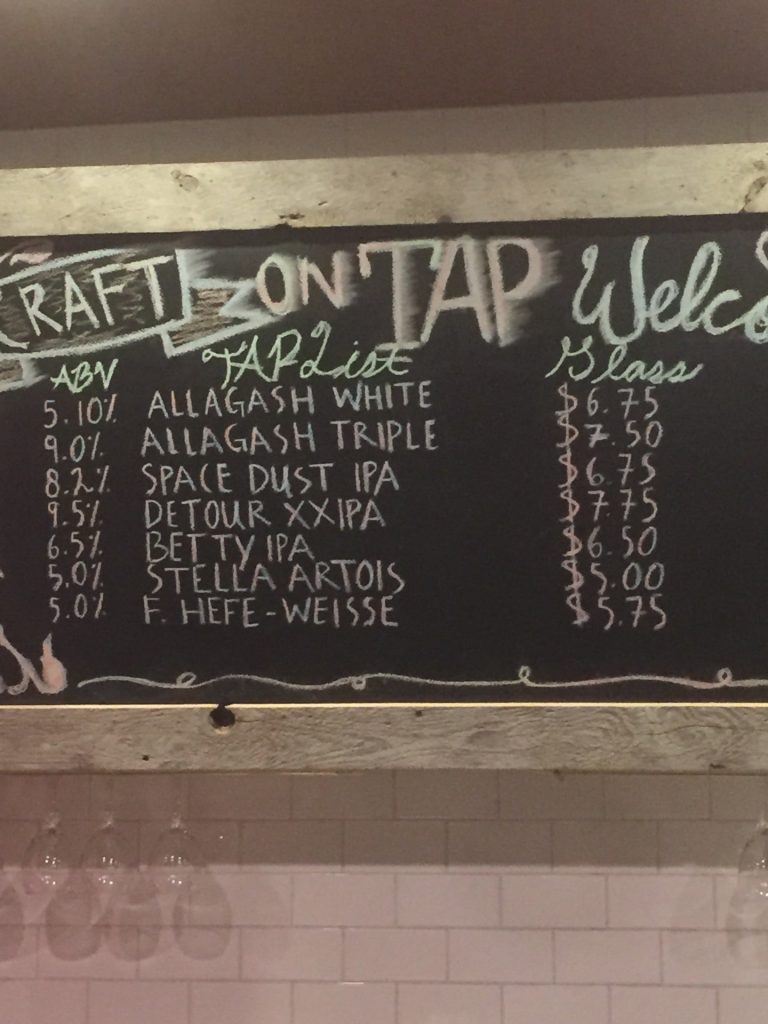 CRAFT ON TAP Welco
ABV TAP List Glass
5.10% ALLAGASH WHITE $6.75
9.0% ALLAGASH TRIPLE $7.50
8.2% SPACE DUST IPA $6.75
9.5% DETOUR XXIPA $7.75
6.5% BETTY IPA $6.50
5.0% STELLA ARTOIS $5.00
5.0% F. HEFE-WEISSE $5.75